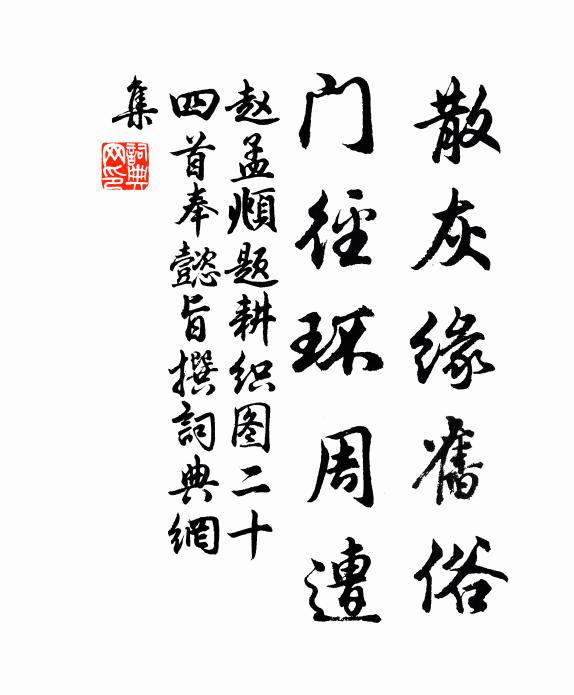 散灰缘舊俗
门径环周遭
赵孟頫题耕织图二十
四首奉懿旨撰詞典網
集
詞典網印